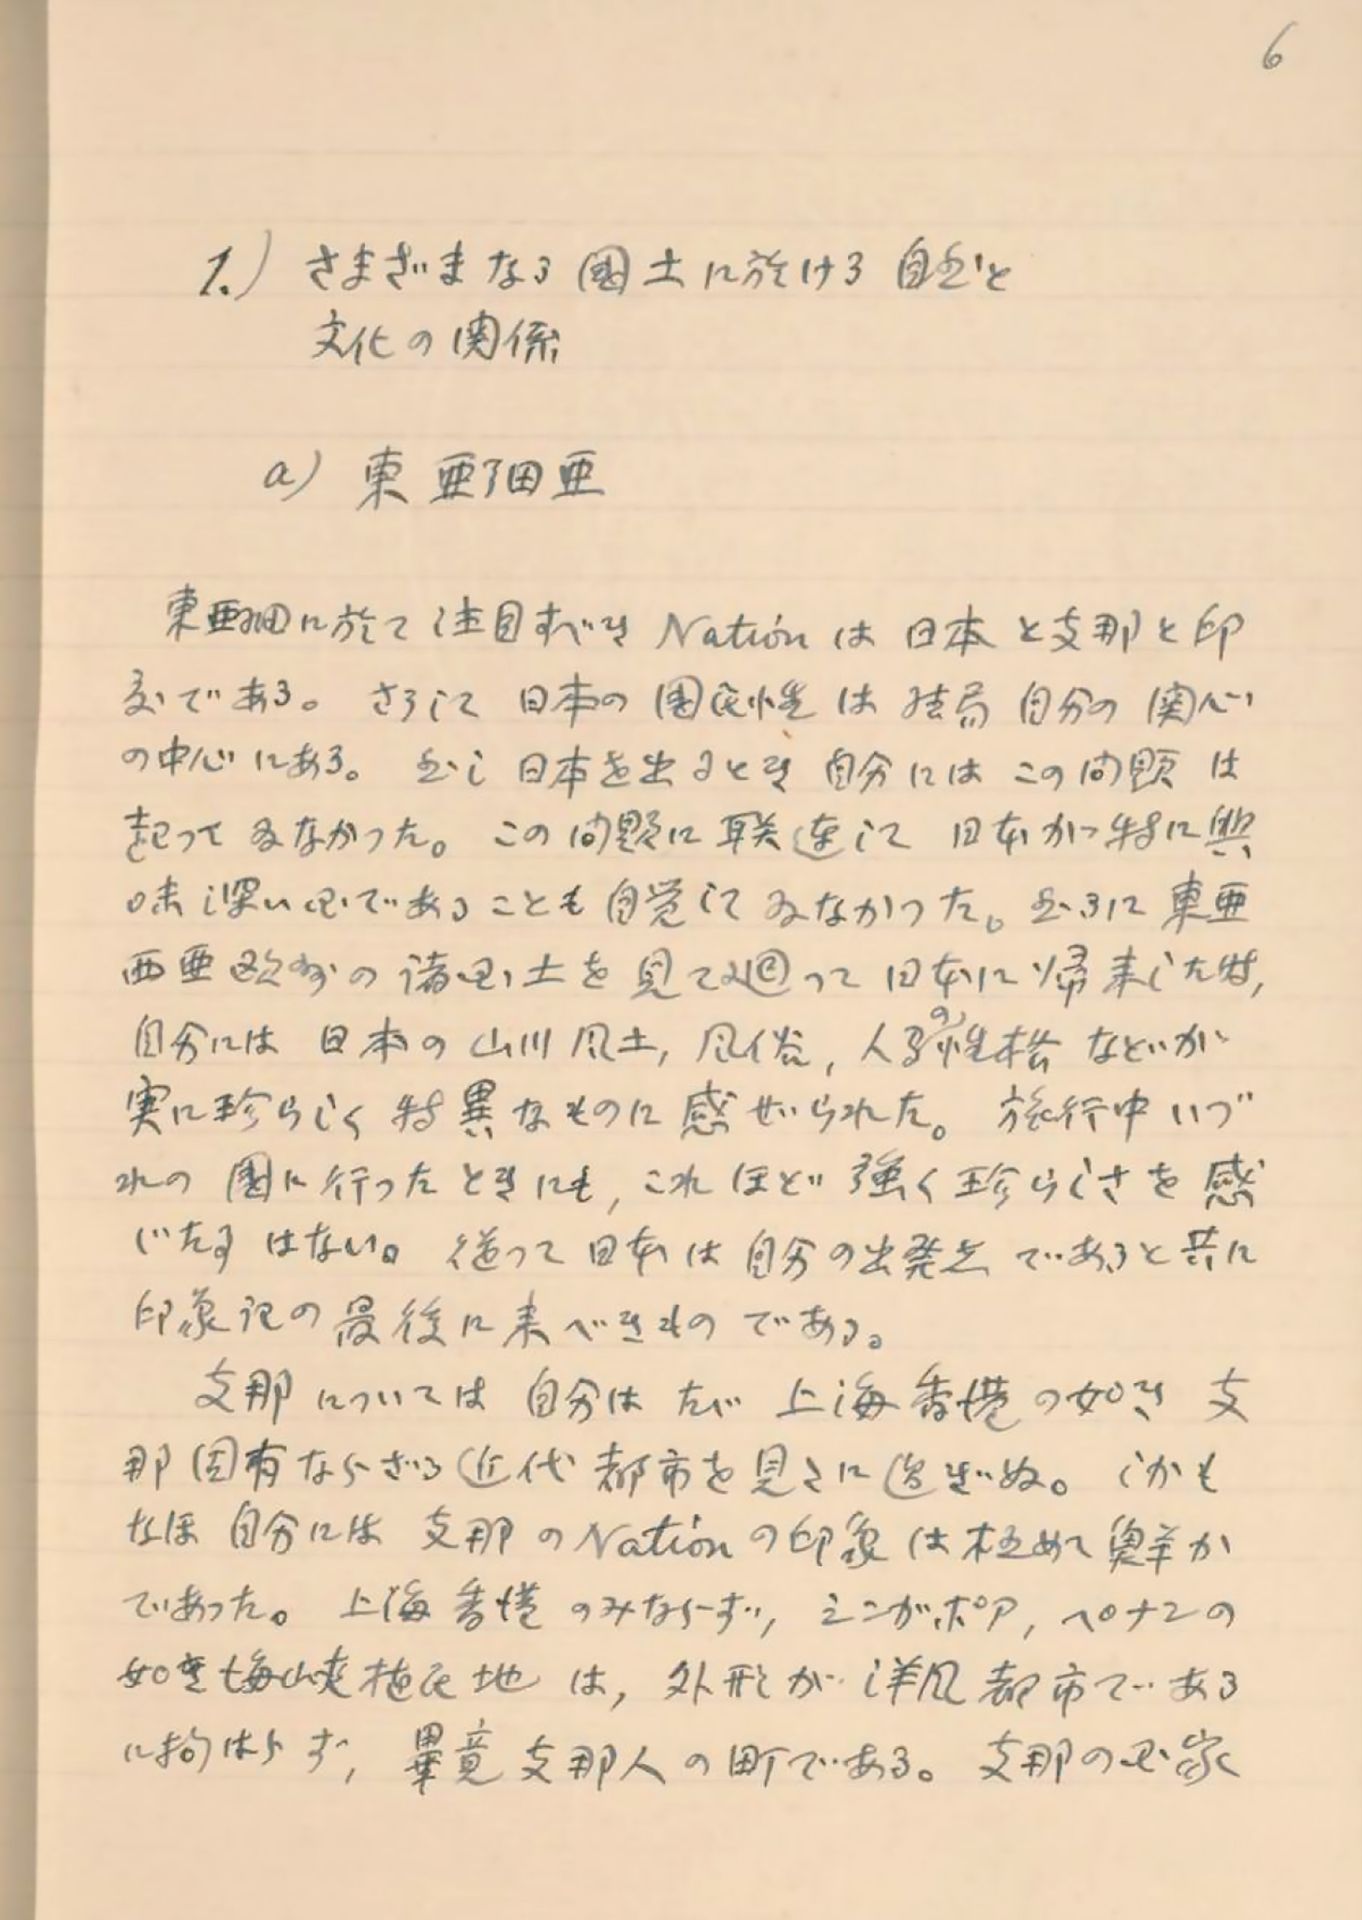 6
1.) さまざまなる國土に於ける自然と
文化の関係
a) 東亜細亜
東亜細に於て注目すべき Nation は日本と支那と印
度である。さうして日本の國民性は結局自分の関心
の中心にある。然し日本を出るとき自分にはこの問題は
起ってゐなかった。この問題に联連して日本が特に興
味深い国であることも自覚してゐなかった。然るに東亜
西亜欧州の諸国土を見て廻って日本に帰来した時,
自分には日本の山川風土, 風俗, 人間の性格などが
実に珍らしく特異なものに感ぜられた。旅行中いづ
れの國に行ったときにも, これほど強く珍らしさを感
じた事はない。従って日本は自分の出発点であると共に
印象記の最後に来べきものである。
支那については自分はたゞ上海香港の如き支
那固有ならざる近代都市を見たに過ぎぬ。しかも
なほ自分には支那の Nation の印象は極めて鮮か
であった。上海香港のみならず, シンガポア, ペナンの
如き海峡植民地は, 外形が洋風都市である
に拘はらず, 畢竟支那人の町である。支那の国家